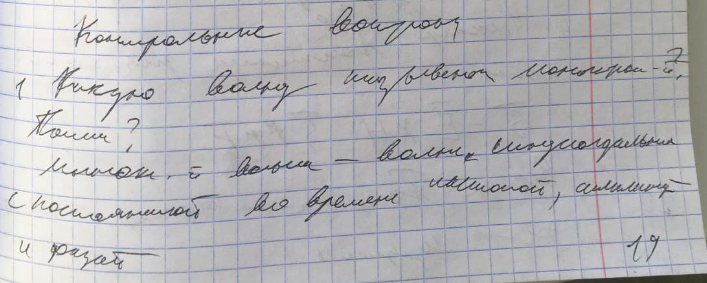 Контрольные вопросы
1 Какую волну называют монохром-й?
Почему?
Монохр. й волна – волна синусоидальная
с постоянной во времени частотой, амплитуд
и фазой
19